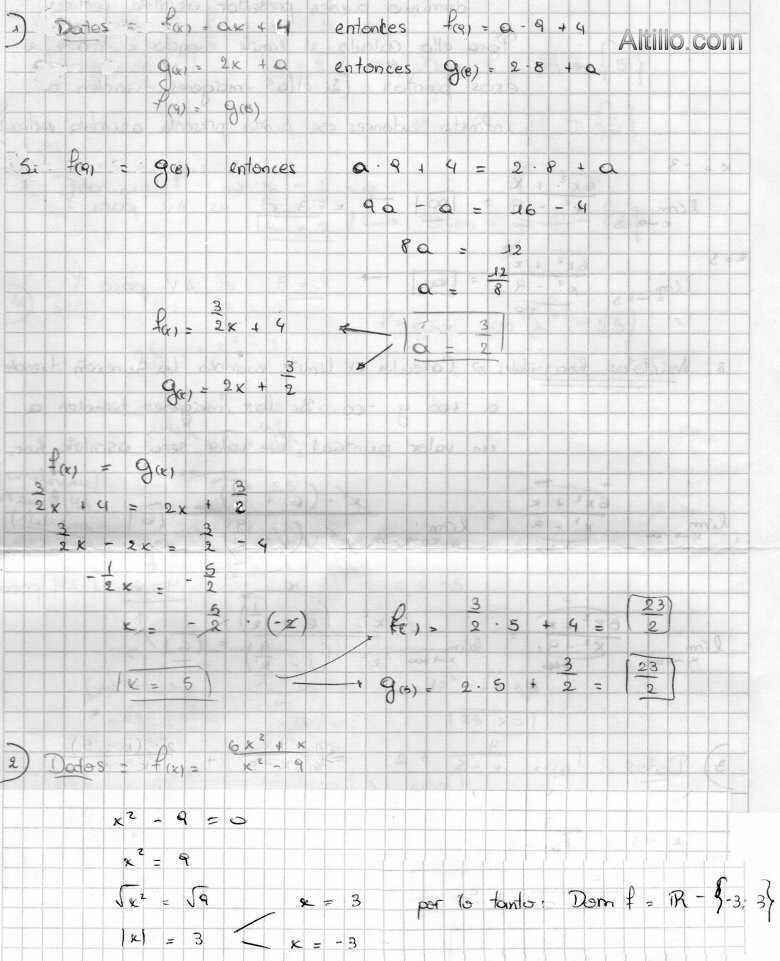 1) Datos = f(x) = ax + 4 entonces f(9) = a · 9 + 4
Altillo.com
g(x) = 2x + a entonces g(8) = 2·8 + a
f(9) = g(8)
Si f(9) = g(8) entonces a · 9 + 4 = 2 · 8 + a
9a - a = 16 - 4
8a = 12
a = 12/8
f(x) = 3/2x + 4
a = 3/2
g(x) = 2x + 3/2
f(x) = g(x)
3/2x + 4 = 2x + 3/2
3/2x - 2x = 3/2 - 4
-1/2x = -5/2
x = -5/2 · (-2)
3/2 · 5 + 4 = 23/2
x = 5
g(5) = 2·5 + 3/2 = 23/2
2) Datos = f(x) = 6x² + x / x² - 9
x² - 9 = 0
x² = 9
√x² = √9 x = 3 por lo tanto: Dom f = ℝ - {-3; 3}
|x| = 3 x = -3